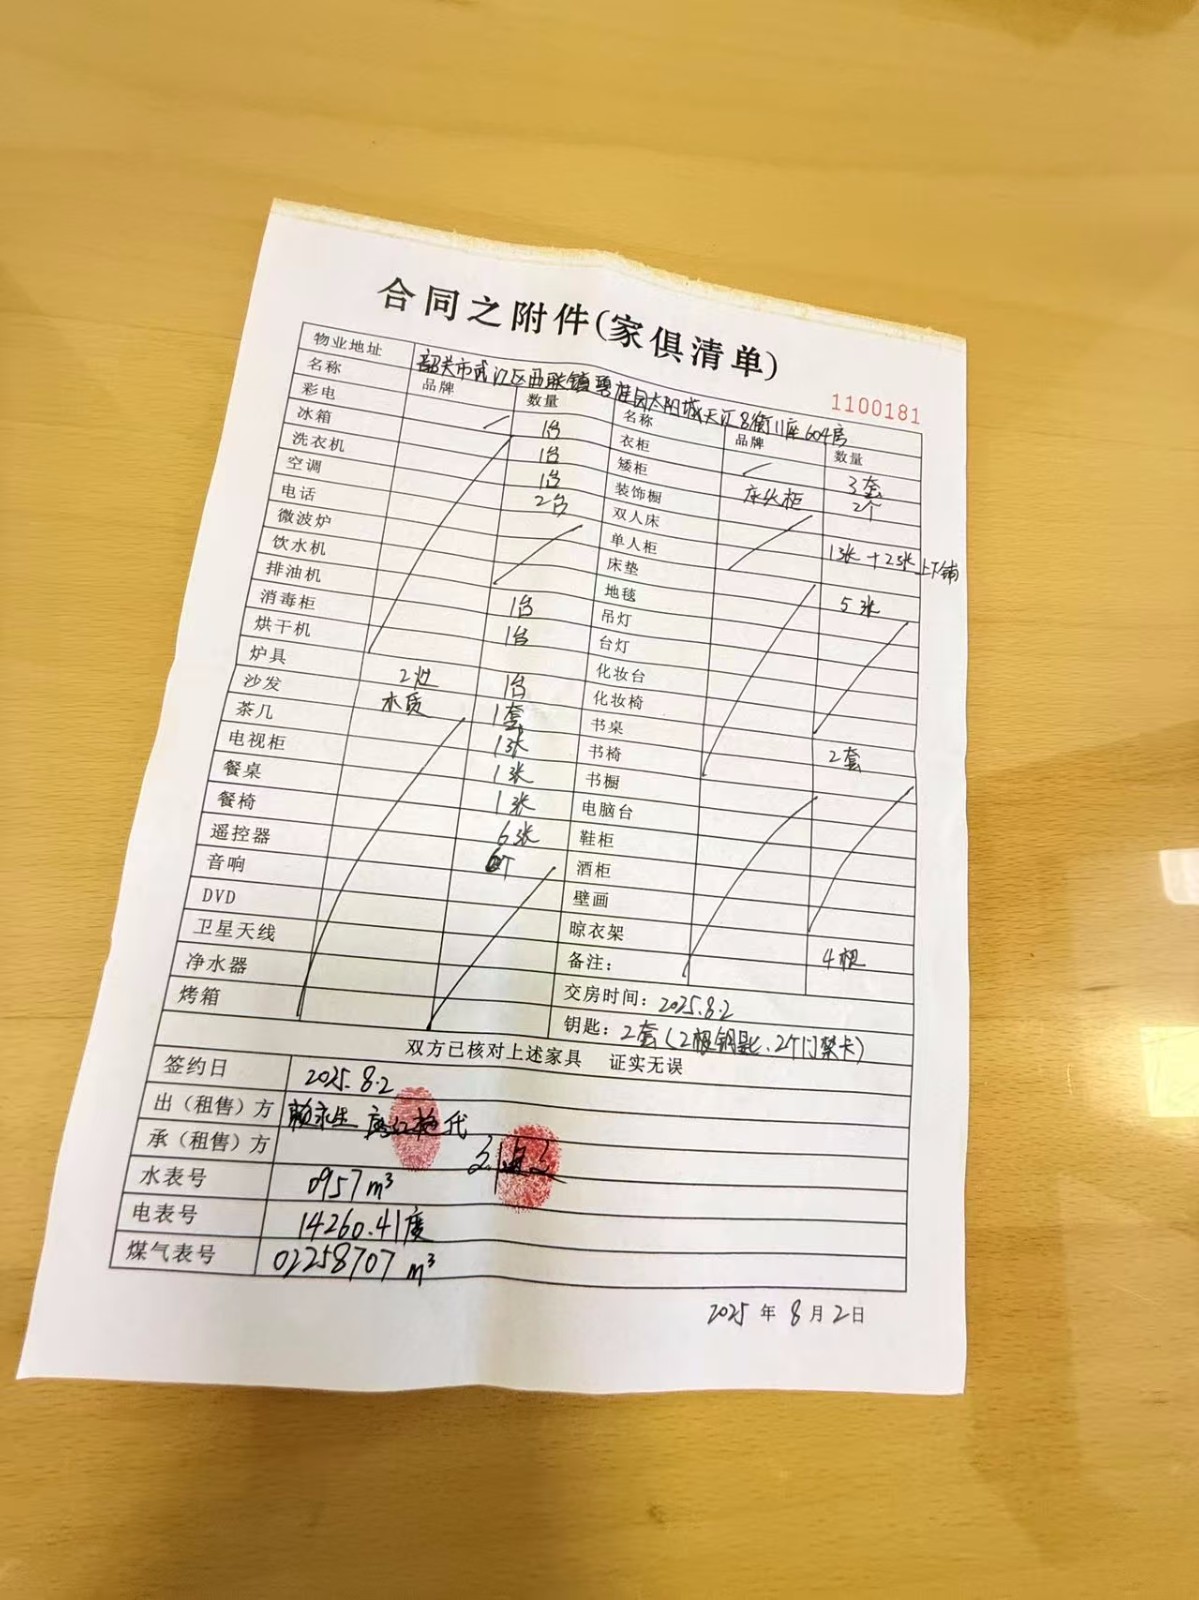 合同之附件(家俱清单)
1100181
物业地址 韶关市武江区西联镇碧桂园太阳城天汇8街11座604房
名称 品牌 数量 名称 品牌 数量
彩电 1台 衣柜 3套
冰箱 1台 矮柜 床头柜 2个
洗衣机 1台 装饰橱
空调 2台 双人床 1张+2张上下铺
电话 单人柜
微波炉 床垫 5张
饮水机 地毯
排油机 1台 吊灯
消毒柜 1台 台灯
烘干机 化妆台
炉具 2灶 1台 化妆椅
沙发 木质 1套 书桌 2套
茶几 1张 书椅
电视柜 1张 书橱
餐桌 1张 电脑台
餐椅 6张 鞋柜
遥控器 6个 酒柜
音响 壁画
DVD 晾衣架 4根
卫星天线 备注:
净水器 交房时间: 2025.8.2
烤箱 钥匙: 2套(2根钥匙、2个门禁卡)
双方已核对上述家具 证实无误
签约日 2025.8.2
出(租售)方 赖永生 代
承(租售)方
水表号 0957m³
电表号 14260.41度
煤气表号 02258707 m³
2025年8月2日